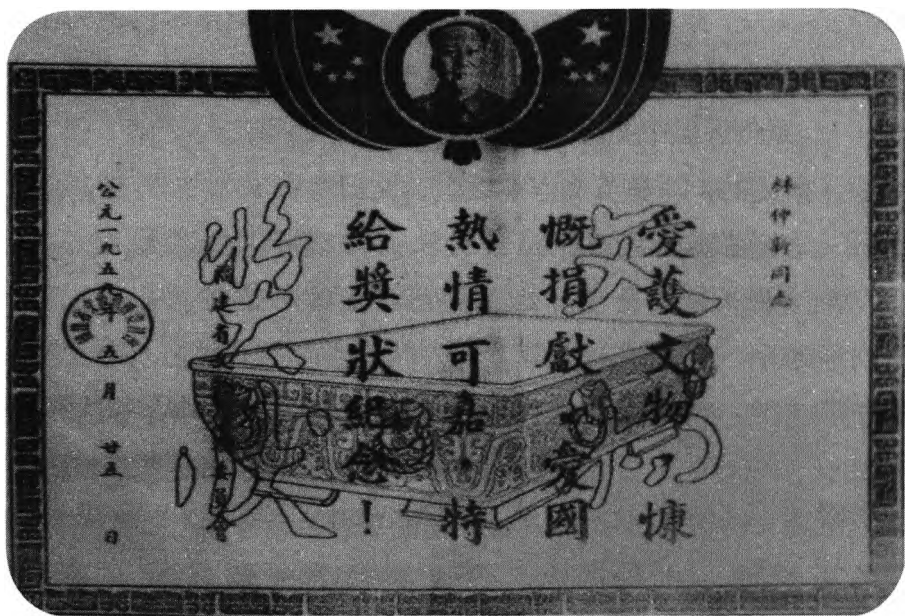 林仲新同志
愛護文物，慷
慨捐獻，愛國
熱情可嘉。特
給獎狀紀念！
福建省委員會
公元一九五年五月廿五日